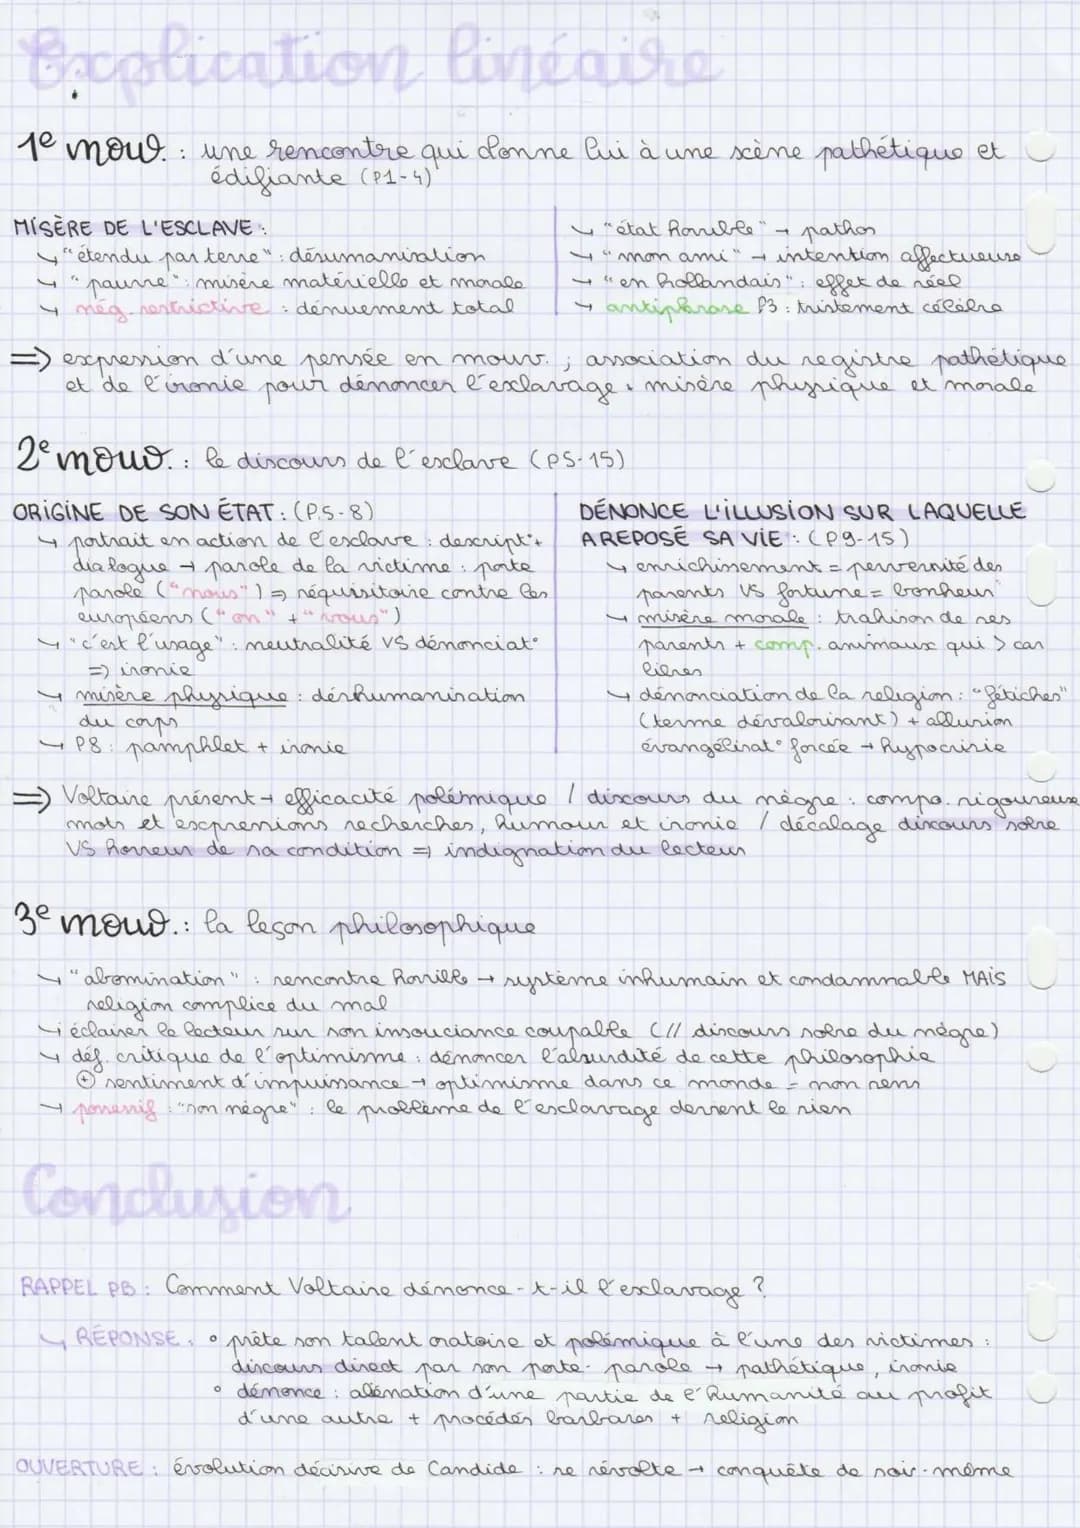 Explication linéaire
1e mouv. : une rencontre qui donne lui à une scène pathétique et
édifiante (P1-4)
MISÈRE DE L'ESCLAVE :
↳ "étendu par terre" : désumanisation
↳ "pauvre" : misère matérielle et morale
↳ nég. restrictive : dénuement total
↳ "état horrible" → pathos
→ "mon ami" → intention affectueuse
→ "en hollandais" : effet de réel
→ antiphrase P3 : tristement célèbre
=> expression d'une pensée en mouv. ; association du registre pathétique
et de l'ironie pour dénoncer l'esclavage : misère physique et morale
2e mouv. : le discours de l'esclave (P5-15)
ORIGINE DE SON ÉTAT : (P.5-8)
↳ portrait en action de l'esclave : descript° +
dialogue → parole de la victime : porte
parole ("nous") => réquisitoire contre les
européens ("on" + "vous")
↳ "c'est l'usage" : neutralité VS dénonciat°
=> ironie
↳ misère physique : déshumanisation
du corps
↳ P8 : pamphlet + ironie
DÉNONCE L'ILLUSION SUR LAQUELLE
A REPOSÉ SA VIE : (P9-15)
↳ enrichissement = perversité des
parents VS fortune = bonheur
↳ misère morale : trahison de ses
parents + comp. animaux qui > car
libres
↳ dénonciation de la religion : "fétiches"
(terme dévalorisant) + allusion
évangélisat° forcée → hypocrisie
=> Voltaire présent → efficacité polémique / discours du nègre : compo. rigoureuse
mots et expressions recherchés, humour et ironie / décalage discours sobre
VS horreur de sa condition => indignation du lecteur
3e mouv. : la leçon philosophique
↳ "abomination" : rencontre horrible → système inhumain et condamnable MAIS
religion complice du mal
↳ éclairer le lecteur sur son insouciance coupable (// discours sobre du nègre)
↳ déf. critique de l'optimisme : dénoncer l'absurdité de cette philosophie
⊕ sentiment d'impuissance → optimisme dans ce monde = non sens
→ possessif : "son nègre" : le problème de l'esclavage devient le sien
Conclusion
RAPPEL PB : Comment Voltaire dénonce-t-il l'esclavage ?
↳ RÉPONSE : ° prête son talent oratoire et polémique à l'une des victimes :
discours direct par son porte-parole → pathétique, ironie
° dénonce : aliénation d'une partie de l'humanité au profit
d'une autre + procédés barbares + religion
OUVERTURE : évolution décisive de Candide : se révolte → conquête de soi-même